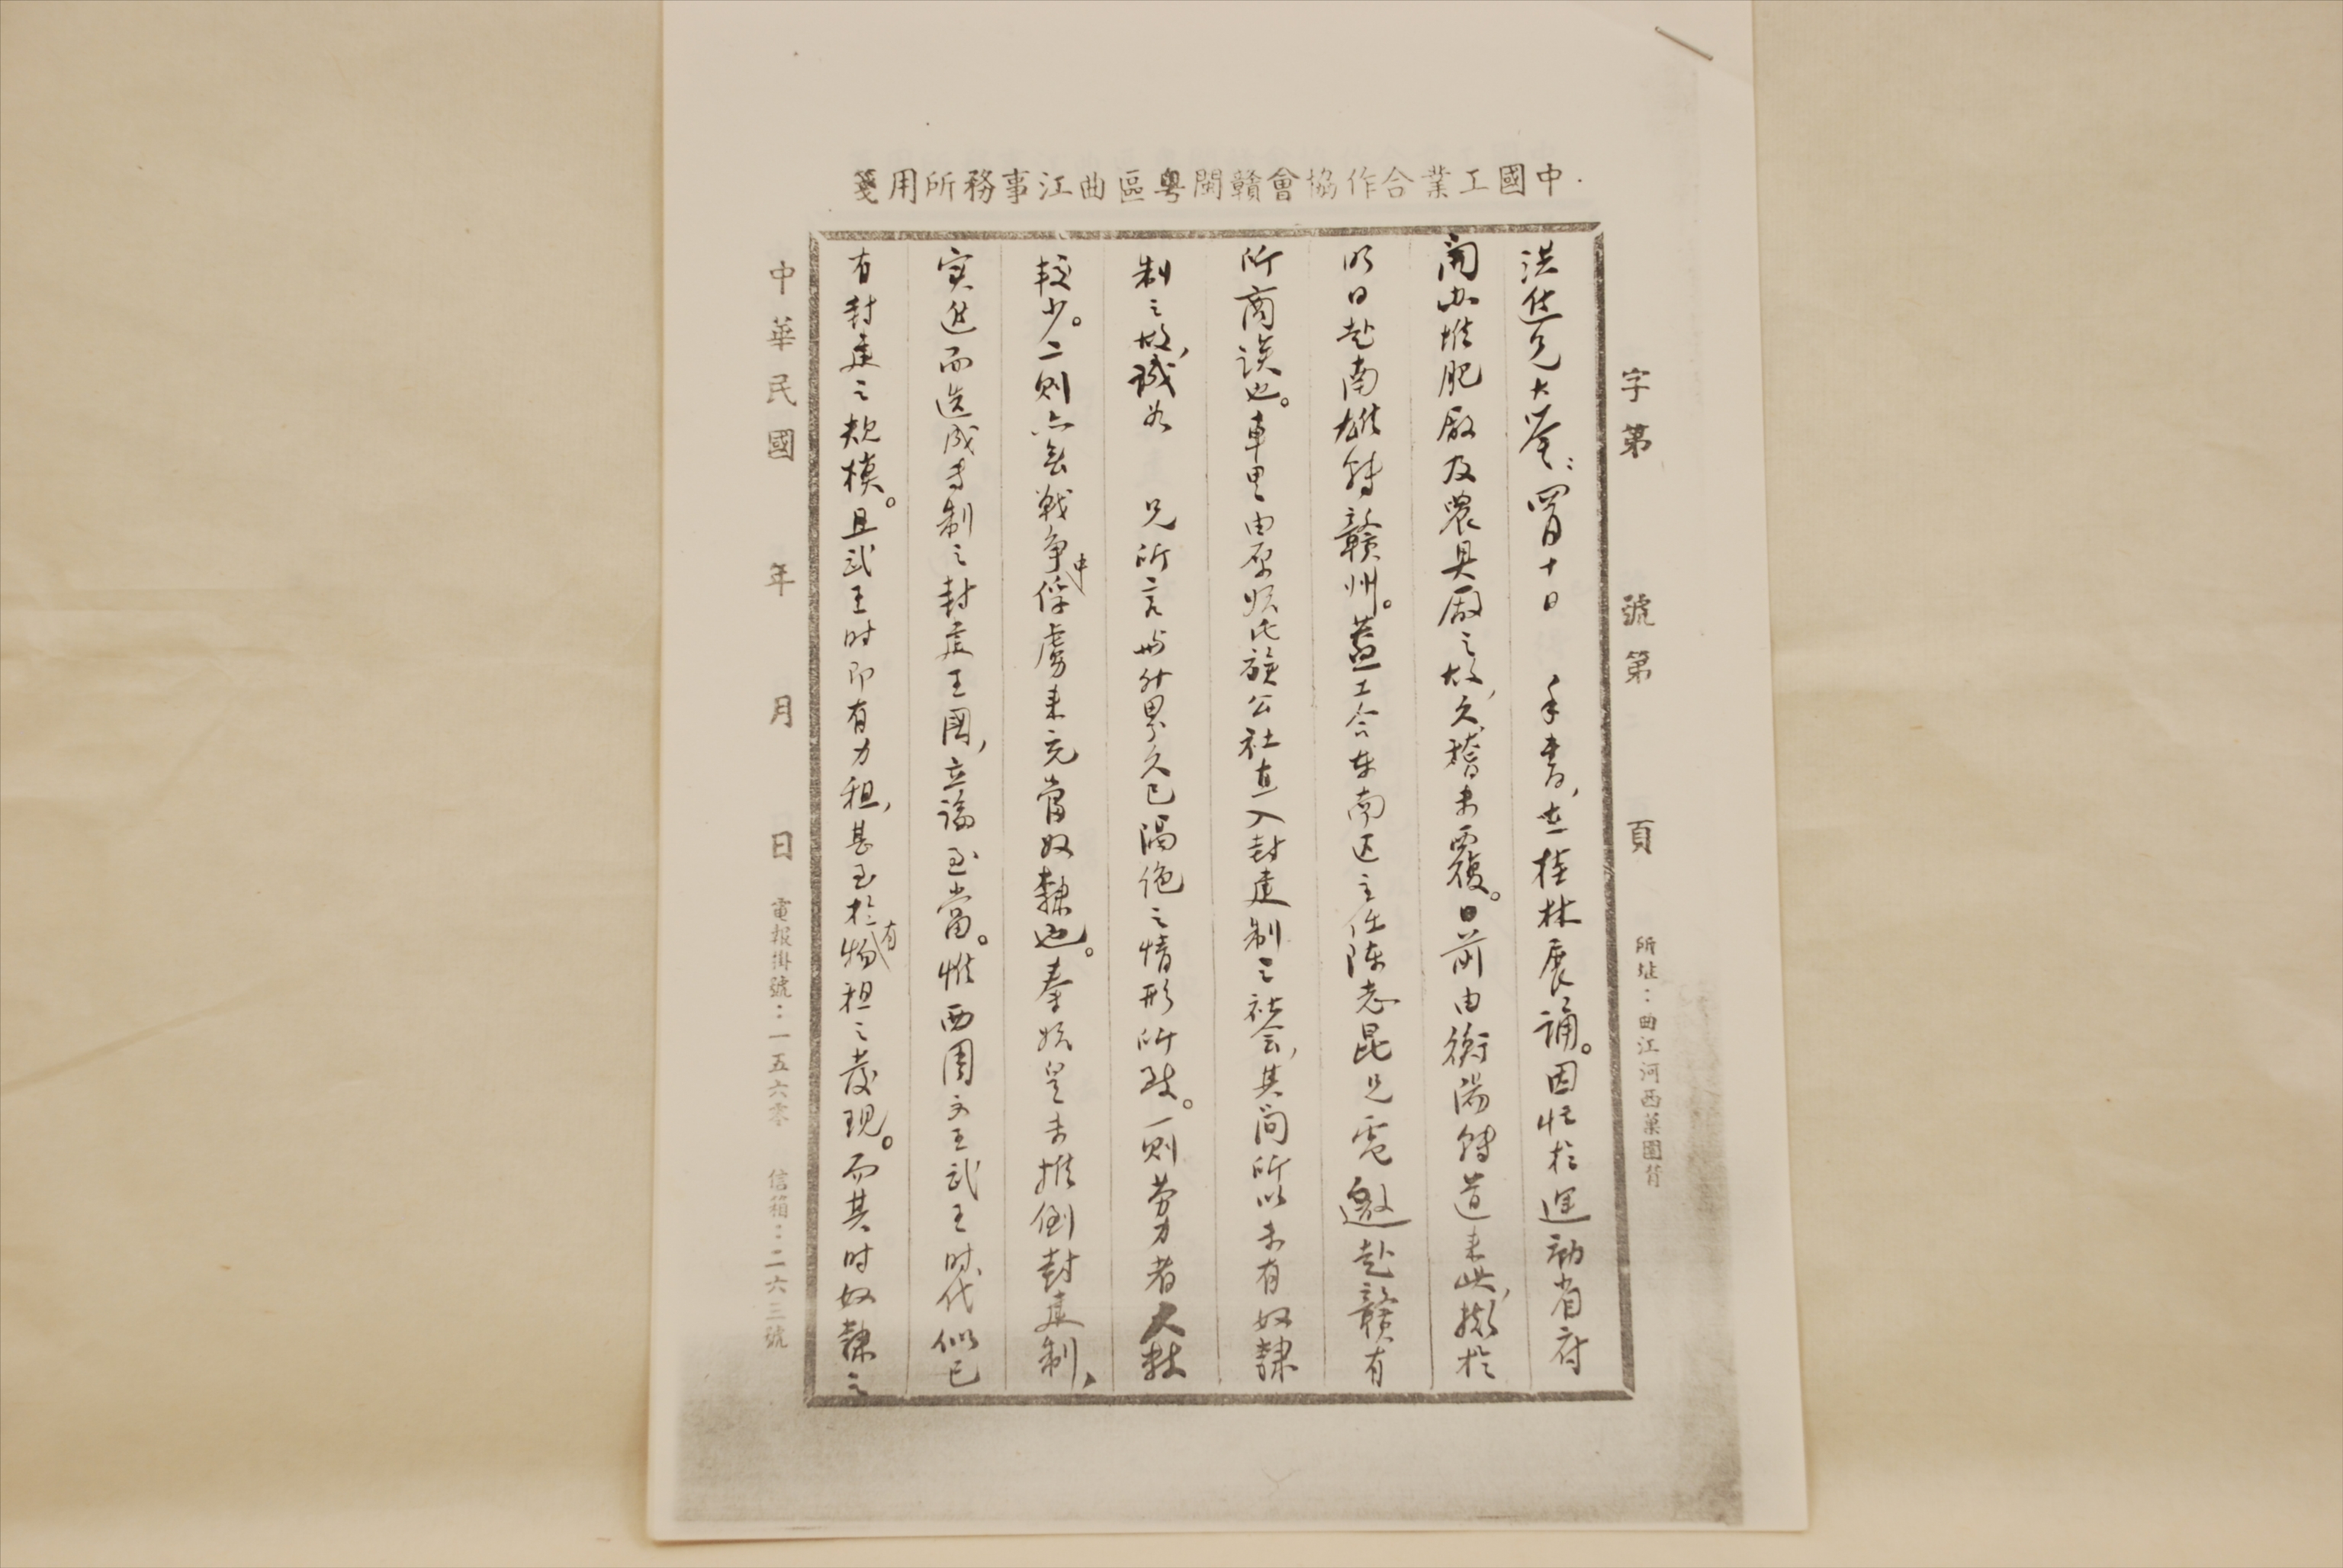 中國工業合作協會贛閩粵區曲江事務所用箋
字第 號第 頁 所址：曲江河西菓園背
洪進兄大鑒：四月十日 手書，在桂林展誦。因忙於運動省府
開办堆肥厰及農具厰之故，久稽未覆。日前由衡陽转道来此，擬於
明日赴南雄转贛州。蓋工合东南区主任陈志昆兄電邀赴贛有
所商談也。車里由原始氏族公社直入封建制之社会，其间所以未有奴隸
制之故，誠如 兄所言與外界久已隔绝之情形所致。一则劳力者
較少。二则亦無戰争中俘虜来充當奴隸也。秦始皇未推倒封建制、
实進而造成专制之封建王國，立論至當。惟西周文王武王时代似已
有封建之規模。且武王时即有力租，甚至於有物租之發现。而其时奴隸之
中華民國 年 月 日 電報掛號：一五六零 信箱：二六三號